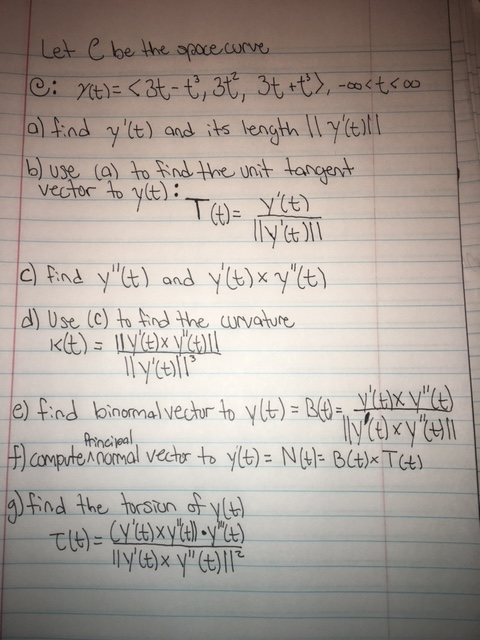 Let C be the space curve
C: γ(t) = <3t - t³, 3t², 3t + t³>, -∞ < t < ∞
a) find γ'(t) and its length ||γ'(t)||
b) use (a) to find the unit tangent
vector to γ(t):
T(t) = γ'(t) / ||γ'(t)||
c) find γ''(t) and γ'(t) × γ''(t)
d) Use (c) to find the curvature
K(t) = ||γ'(t) × γ''(t)|| / ||γ'(t)||³
e) find binormal vector to γ(t) = B(t) = γ'(t) × γ''(t) / ||γ'(t) × γ''(t)||
f) compute ^Principal normal vector to γ(t) = N(t) = B(t) × T(t)
g) find the torsion of γ(t)
τ(t) = (γ'(t) × γ''(t)) • γ'''(t) / ||γ'(t) × γ''(t)||²